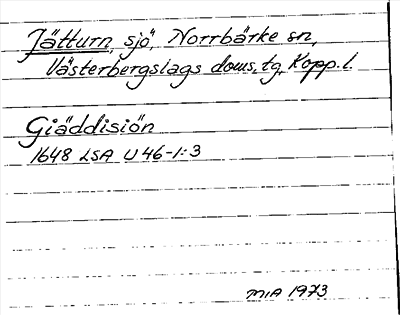 Jätturn, sjö, Norrbärke sn,
Västerbergslags doms.tg, Kopp.l.
Giäddisiön
1648 LSA U46-1:3
MIA 1973